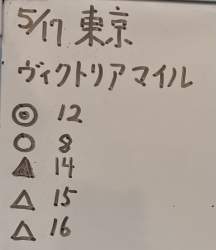 5/17 東京
ヴィクトリアマイル
◎ 12
○ 8
▲ 14
△ 15
△ 16